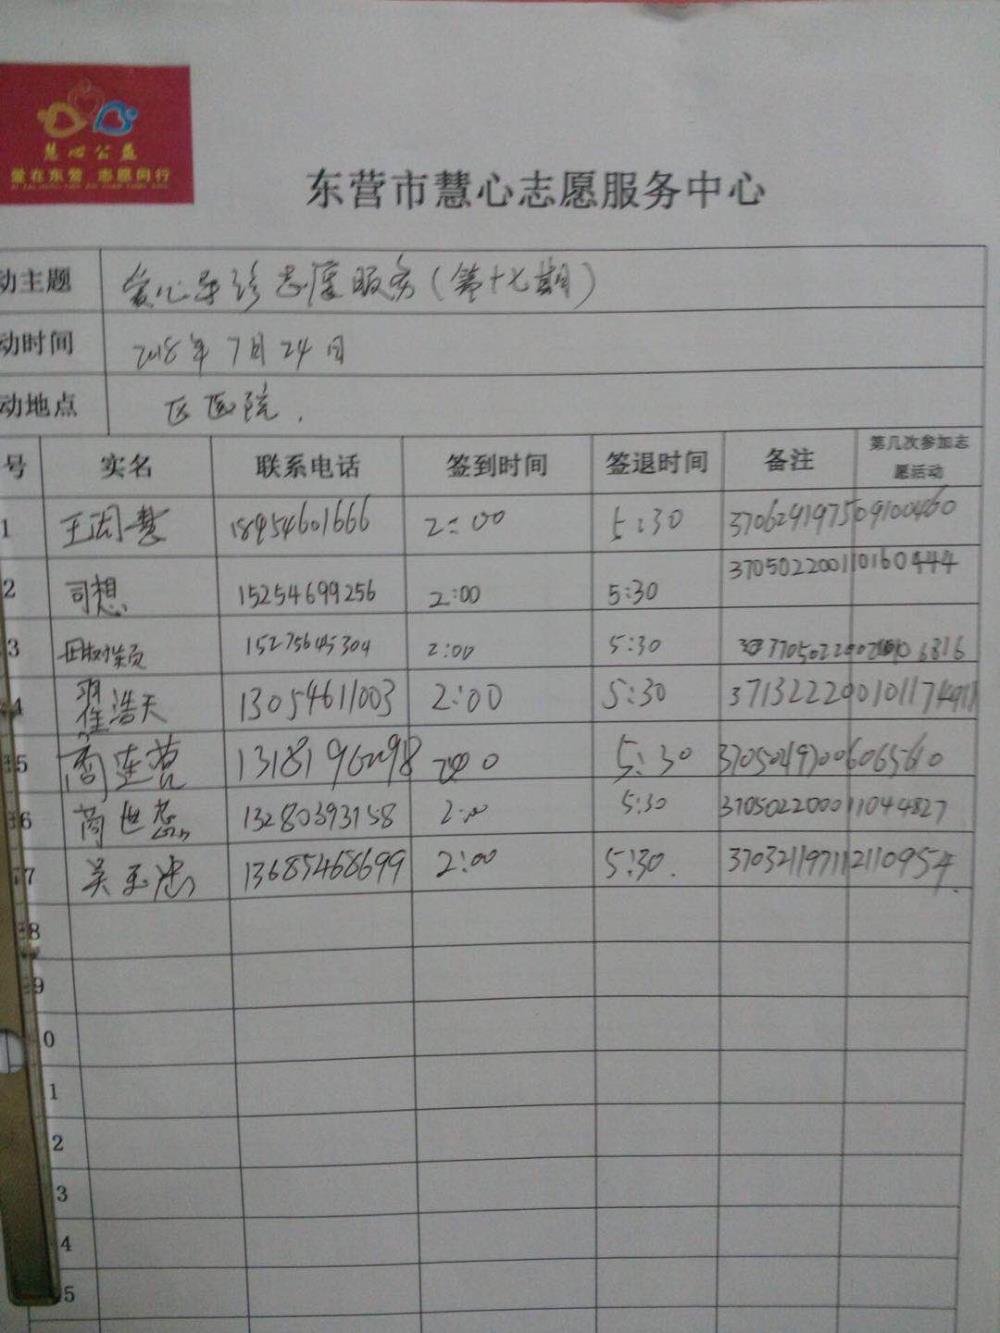 慧心公益
爱在东营 志愿同行
东营市慧心志愿服务中心
动主题 爱心导诊志愿服务(第十七期)
动时间 2018年7月24日
动地点 区医院.
号 实名 联系电话 签到时间 签退时间 备注 第几次参加志愿活动
1 王周慧 18954601666 2:00 5:30 370629197509100460
2 司想 15254699256 2:00 5:30 370502200110160444
3 15275645304 2:00 5:30
4 程浩天 13054611003 2:00 5:30
5 商连营 13181960298 5:30
6 商世磊 13280393158 2:00 5:30 370502200011044827
7 吴玉忠 13685468699 2:00 5:30. 370321197112110954.
8
9
0
1
2
3
4
5